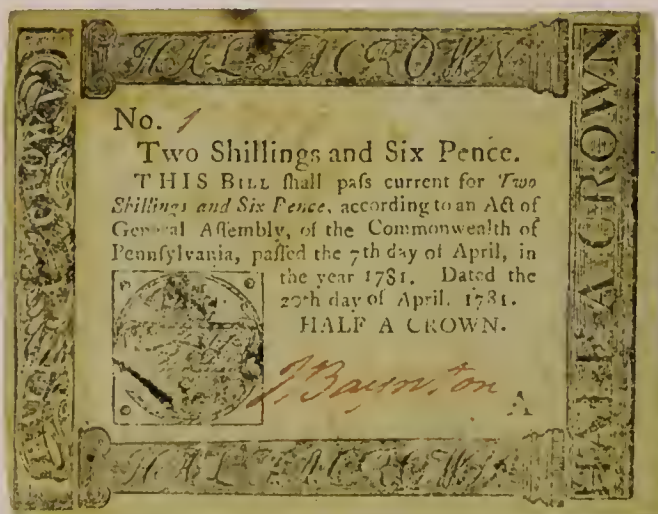 HALF A CROWN
No. 1
Two Shillings and Six Pence.
THIS BILL ſhall paſs current for Two
Shillings and Six Pence, according to an Act of
General Aſſembly, of the Commonwealth of
Pennſylvania, paſſed the 7th day of April, in
the year 1781. Dated the
20th day of April, 1781.
HALF A CROWN.
J. Baynton
A
HALF A CROWN
HALF A CROWN